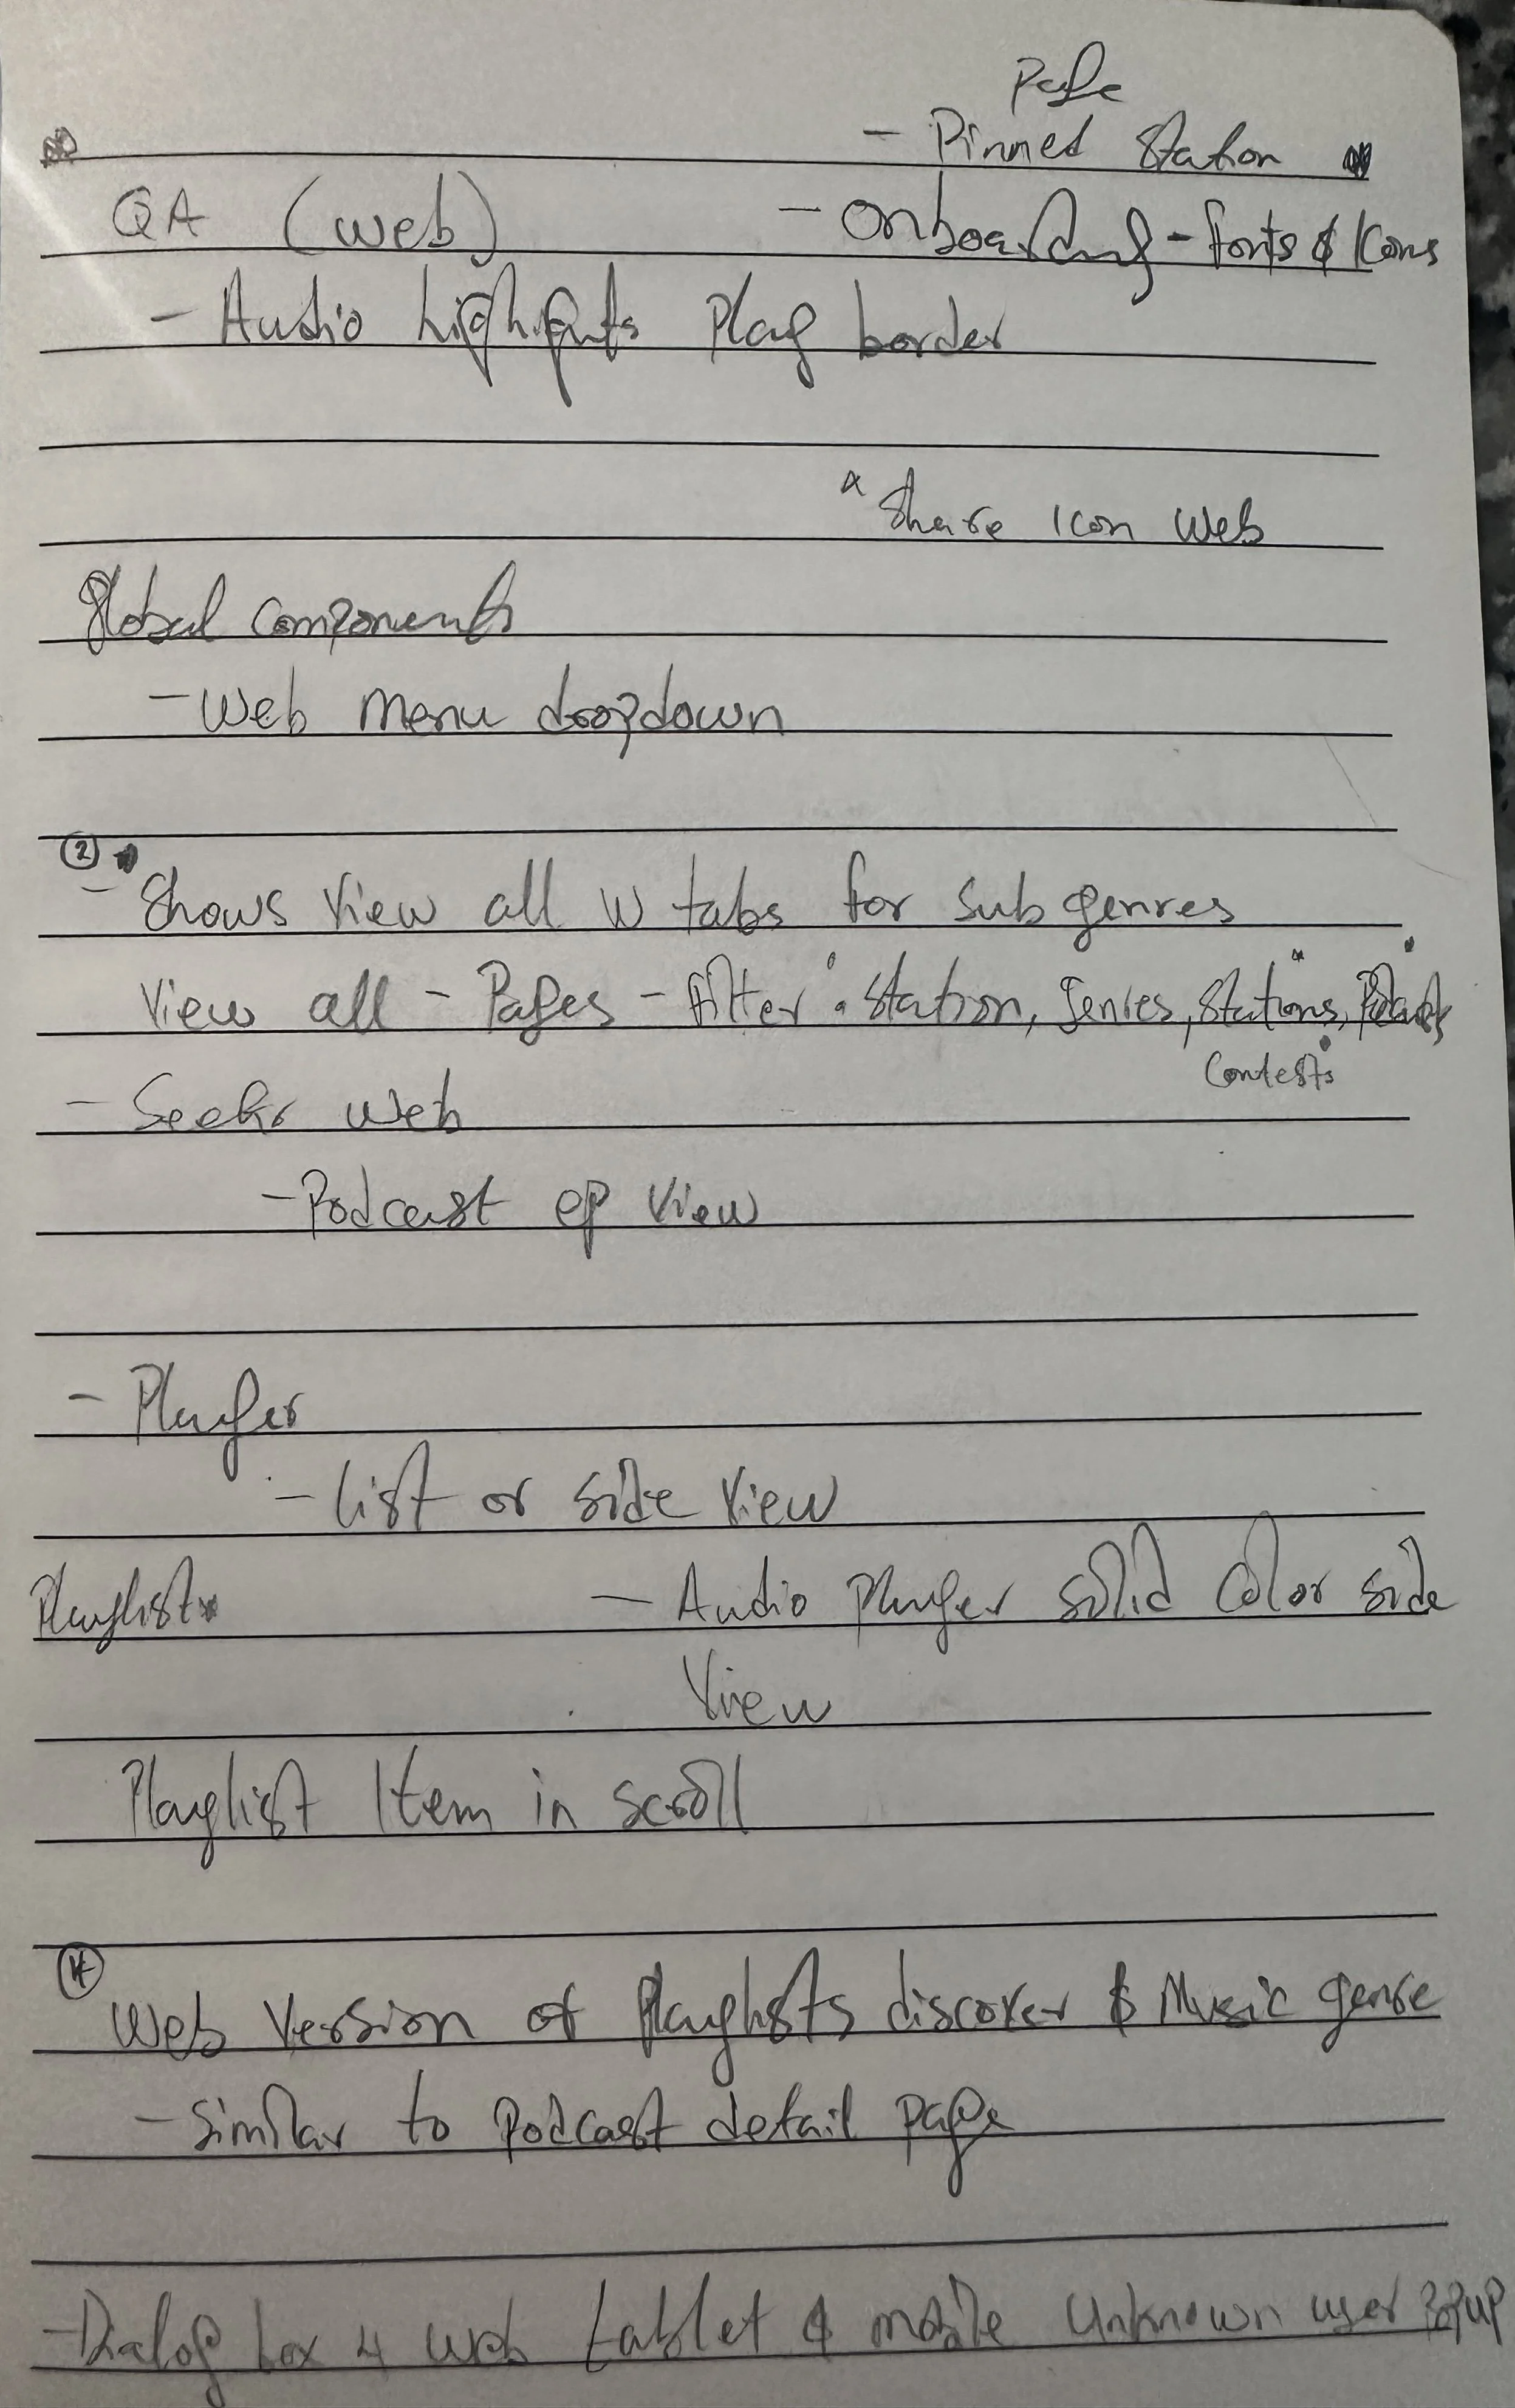 Page
- Pinned Station
QA (web) - Onboarding - fonts & Icons
- Audio highlights Play border
* Share Icon Web
Global Components
- Web menu dropdown
②
- Shows View all w tabs for Sub genres
View all - Pages - filter • Station, Genres, Stations,
Contests
- Seekr web
- Podcast ep View
- Player
- List or side View
Playlist - Audio Player solid Color side
View
Playlist Item in scroll
④
Web Version of Playlists discover & Music genre
- Similar to Podcast detail page
- Dialog box 4 web tablet & mobile Unknown user popup